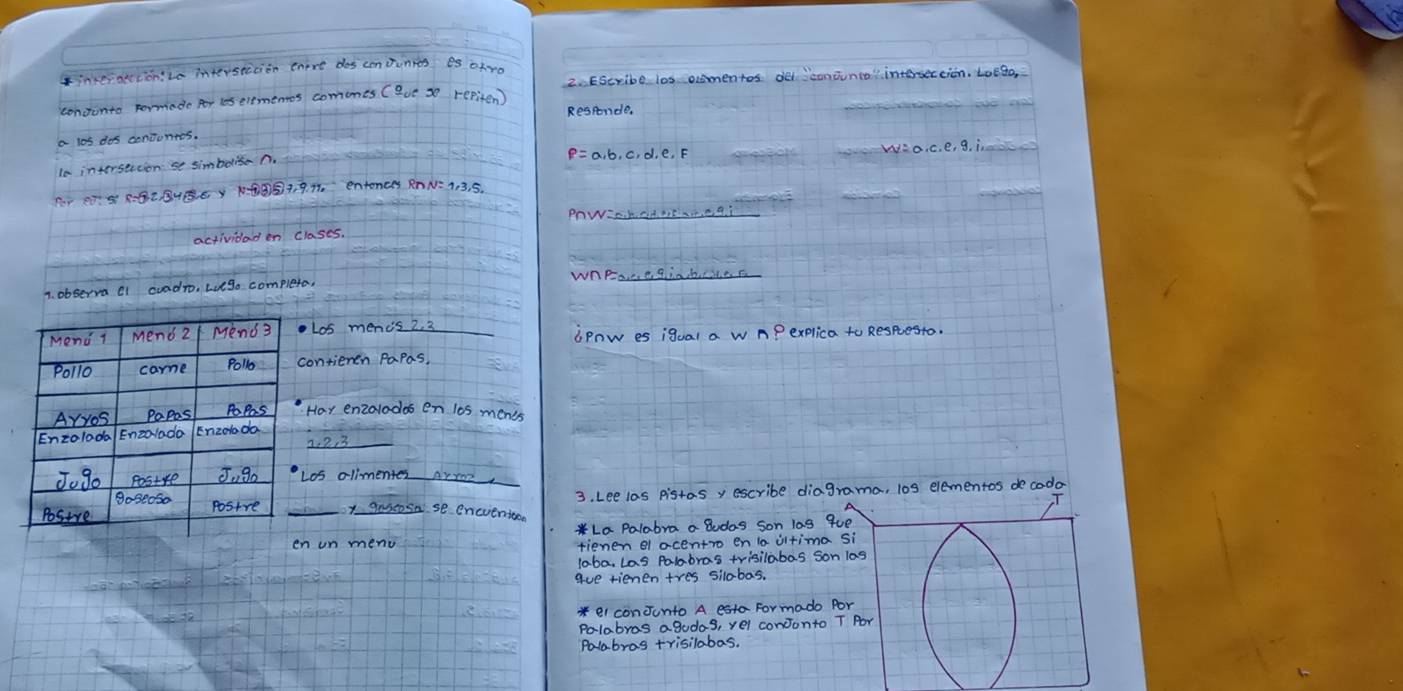 * intersección: La intersección entre dos conJuntos es otro
conJunto Formado Por los elementos comunes (Que se repiten)
a los dos conJuntos.
la intersección se simbolisa ∩.
Por eJ: si R=1,2,3,4,5,6 y N=1,3,5,7,9,11. entonces R∩N= 1,3,5.
actividad en clases.
1. observa el cuadro. Luego completa.
Menú 1 Menú 2 Menú 3
Pollo carne Pollo
Arros Papas Papas
Enzalada Enzalada Enzalada
Jugo Postre Jugo
Postre gaseosa Postre
• Los menús 2,3
contienen Papas.
• Hay enzaladas en los menús
1,2,3
• Los alimentos Arroz,
y gaseosa se encuentran
en un menú
2. Escribe los elementos del "conJunto" intersección. Luego,
Responde.
P= a,b,c,d,e,F W= a,c,e,g,i
P∩W=
W∩P=
¿P∩W es igual a W∩P explica tu Respuesta.
3. Lee las Pistas y escribe diagrama, los elementos de cada
* La Palabra a gudas son las que
tienen el acento en la última si
laba. Las Palabras trisilabas son las
que tienen tres silabas.
* el conJunto A esta Formado Por
Palabras agudas, y el conJunto T Por
Palabras trisilabas.
A T